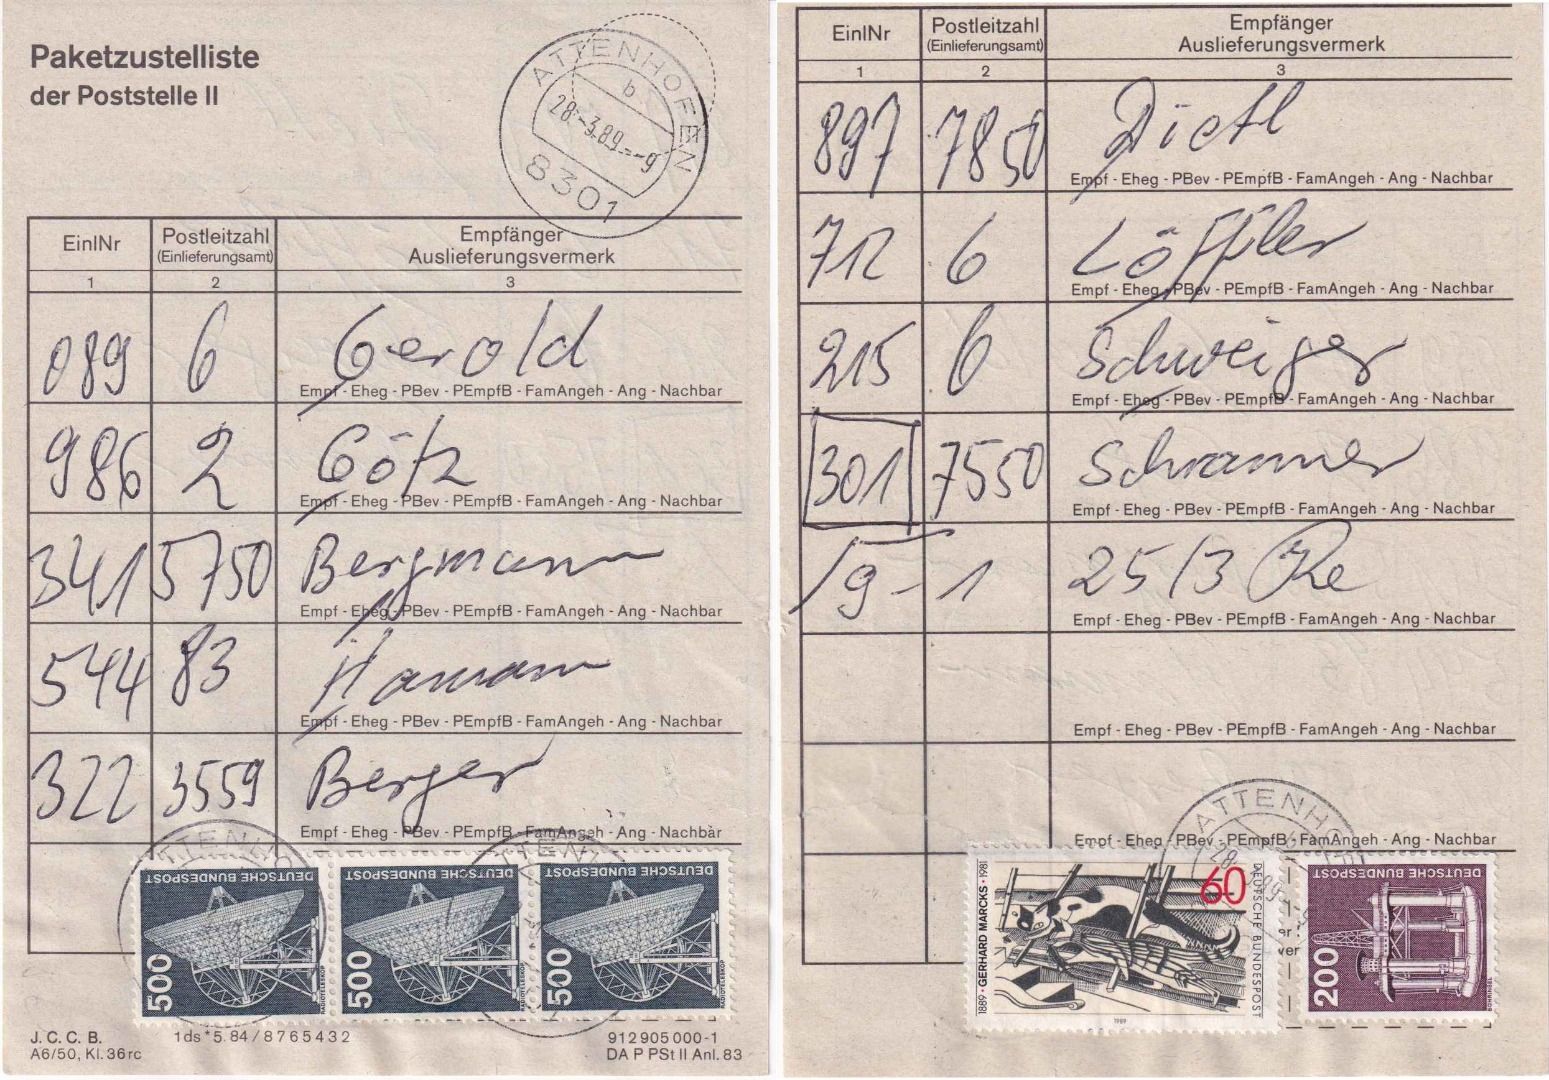 Paketzustelliste
der Poststelle II
ATTENHOFEN
b
28.-3.89.--9
8301
EinlNr
Postleitzahl
(Einlieferungsamt)
Empfänger
Auslieferungsvermerk
1 2 3
089 6 Gerold
Empf - Eheg - PBev - PEmpfB - FamAngeh - Ang - Nachbar
986 2 Götz
Empf - Eheg - PBev - PEmpfB - FamAngeh - Ang - Nachbar
341 5750 Bergmann
Empf - Eheg - PBev - PEmpfB - FamAngeh - Ang - Nachbar
544 83 Hamann
Empf - Eheg - PBev - PEmpfB - FamAngeh - Ang - Nachbar
322 3559 Berger
Empf - Eheg - PBev - PEmpfB - FamAngeh - Ang - Nachbar
DEUTSCHE BUNDESPOST
500
RADIOTELESKOP
DEUTSCHE BUNDESPOST
500
RADIOTELESKOP
DEUTSCHE BUNDESPOST
500
RADIOTELESKOP
J. C. C. B.
A6/50, Kl. 36rc
1ds * 5. 84 / 8 7 6 5 4 3 2
912 905 000-1
DA P PSt II Anl. 83
EinlNr
Postleitzahl
(Einlieferungsamt)
Empfänger
Auslieferungsvermerk
1 2 3
897 7850 Dietl
Empf - Eheg - PBev - PEmpfB - FamAngeh - Ang - Nachbar
712 6 Löffler
Empf - Eheg - PBev - PEmpfB - FamAngeh - Ang - Nachbar
215 6 Schweiger
Empf - Eheg - PBev - PEmpfB - FamAngeh - Ang - Nachbar
301 7550 Schranner
Empf - Eheg - PBev - PEmpfB - FamAngeh - Ang - Nachbar
9 - 1 25/3
Empf - Eheg - PBev - PEmpfB - FamAngeh - Ang - Nachbar
Empf - Eheg - PBev - PEmpfB - FamAngeh - Ang - Nachbar
Empf - Eheg - PBev - PEmpfB - FamAngeh - Ang - Nachbar
ATTENH
1889 • GERHARD MARCKS • 1981
60
DEUTSCHE BUNDESPOST
1989
DEUTSCHE BUNDESPOST
200
BOHRINSEL